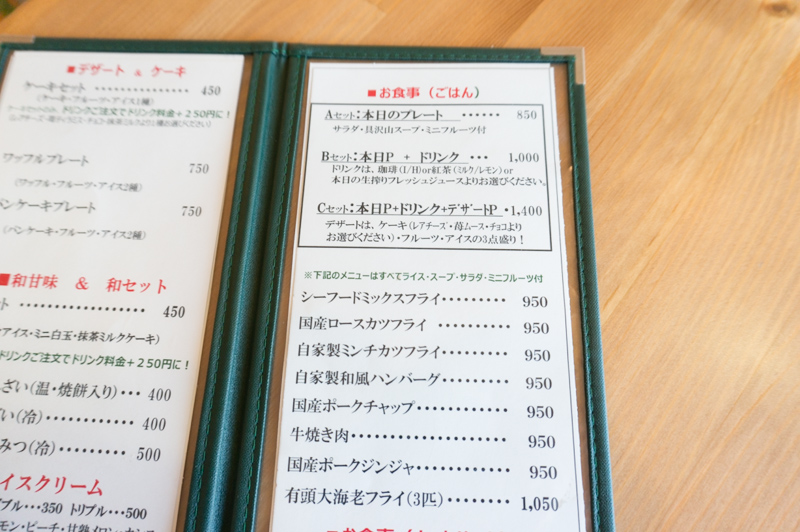 ■デザート & ケーキ
ケーキセット ・・・・・・・・・・・・・・・ 450
(ケーキ・フルーツ・アイス1種)
ドリンクご注文でドリンク料金+250円に!
ワッフルプレート 750
(ワッフル・フルーツ・アイス2種)
パンケーキプレート 750
(パンケーキ・フルーツ・アイス2種)
■和甘味 & 和セット
ト ・・・・・・・・・・・・・・・・・・ 450
アイス・ミニ白玉・抹茶ミルクケーキ)
ドリンクご注文でドリンク料金+250円に!
ざい(温・焼餅入り)・・・ 400
い(冷)・・・・・・・・・・・・ 400
みつ(冷)・・・・・・・・・ 500
イスクリーム
ブル・・・350 トリプル・・・500
■お食事(ごはん)
Aセット:本日のプレート ・・・・・・ 850
サラダ・具沢山スープ・ミニフルーツ付
Bセット:本日P + ドリンク ・・・ 1,000
ドリンクは、珈琲(I/H)or紅茶(ミルク/レモン)or
本日の生搾りフレッシュジュースよりお選びください。
Cセット:本日P+ドリンク+デザートP ・1,400
デザートは、ケーキ(レアチーズ・苺ムース・チョコより
お選びください)・フルーツ・アイスの3点盛り!
※下記のメニューはすべてライス・スープ・サラダ・ミニフルーツ付
シーフードミックスフライ・・・・・・・・・ 950
国産ロースカツフライ ・・・・・・・・・・ 950
自家製ミンチカツフライ・・・・・・・・・・ 950
自家製和風ハンバーグ・・・・・・・・・・・ 950
国産ポークチャップ・・・・・・・・・・・・ 950
牛焼き肉・・・・・・・・・・・・・・・・・・ 950
国産ポークジンジャ・・・・・・・・・・・・ 950
有頭大海老フライ(3匹)・・・・・・・・ 1,050